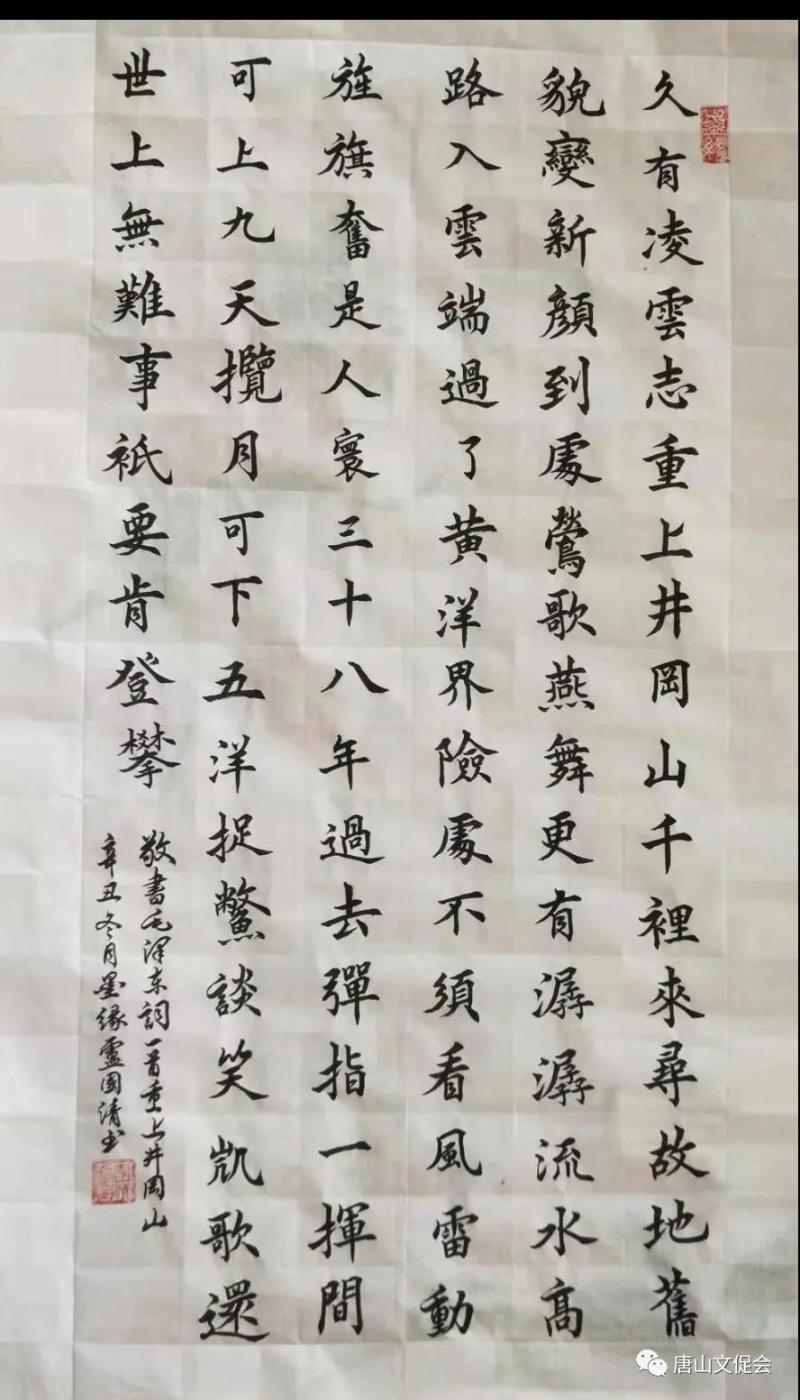 久有凌雲志重上井岡山千裡來尋故地舊
貌變新顏到處鶯歌燕舞更有潺潺流水高
路入雲端過了黄洋界險處不須看風雷動
旌旗奮是人寰三十八年過去彈指一揮間
可上九天攬月可下五洋捉鱉談笑凱歌還
世上無難事衹要肯登攀
敬書毛澤东詞一首重上井岡山
辛丑冬月墨缘國清书
唐山文促会